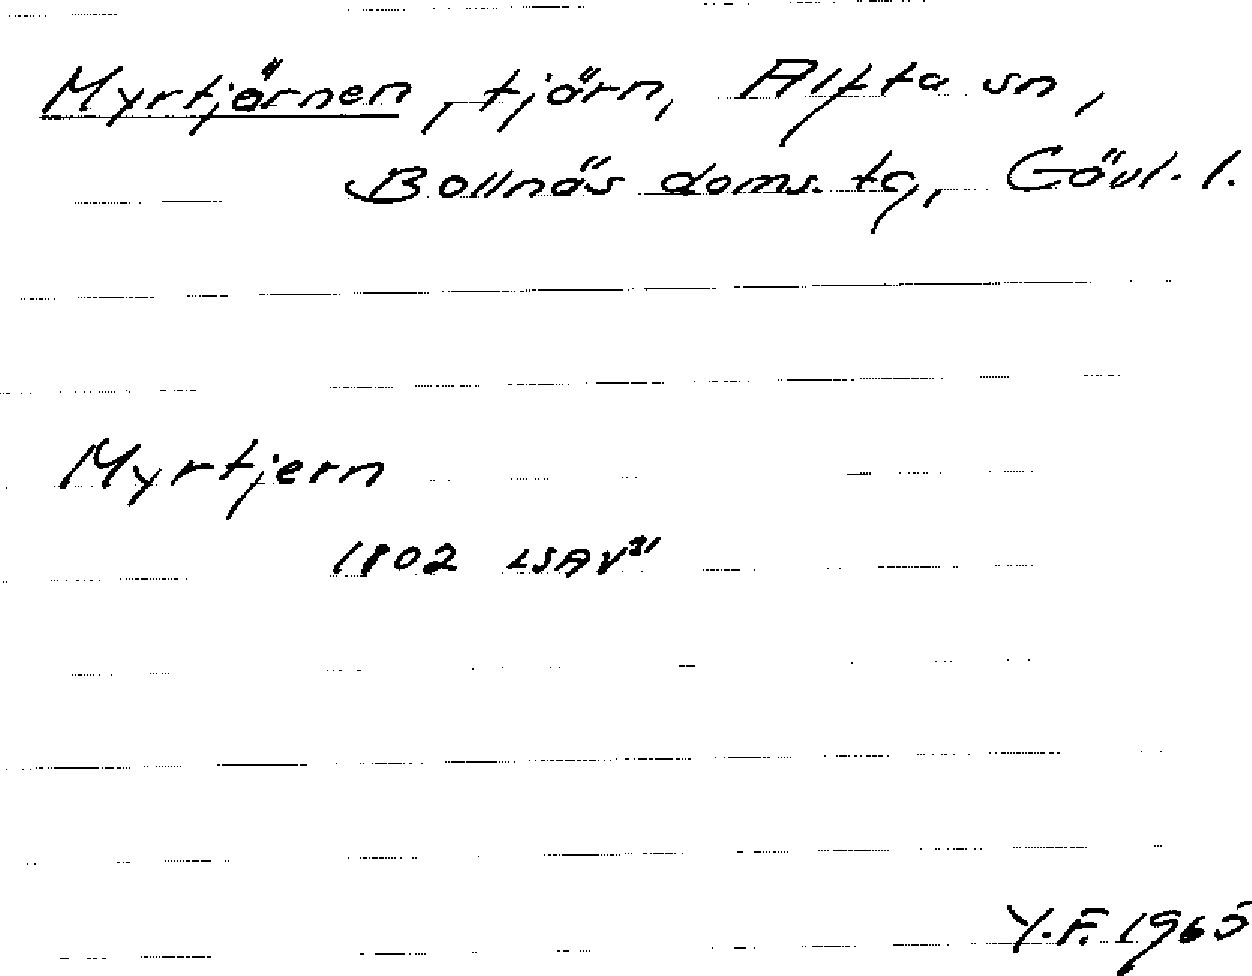 Myrtjärnen, tjärn, Alfta sn,
Bollnäs doms. tg, Gävl. l.
Myrtjern
1802 LSA V²¹
Y.F. 1965